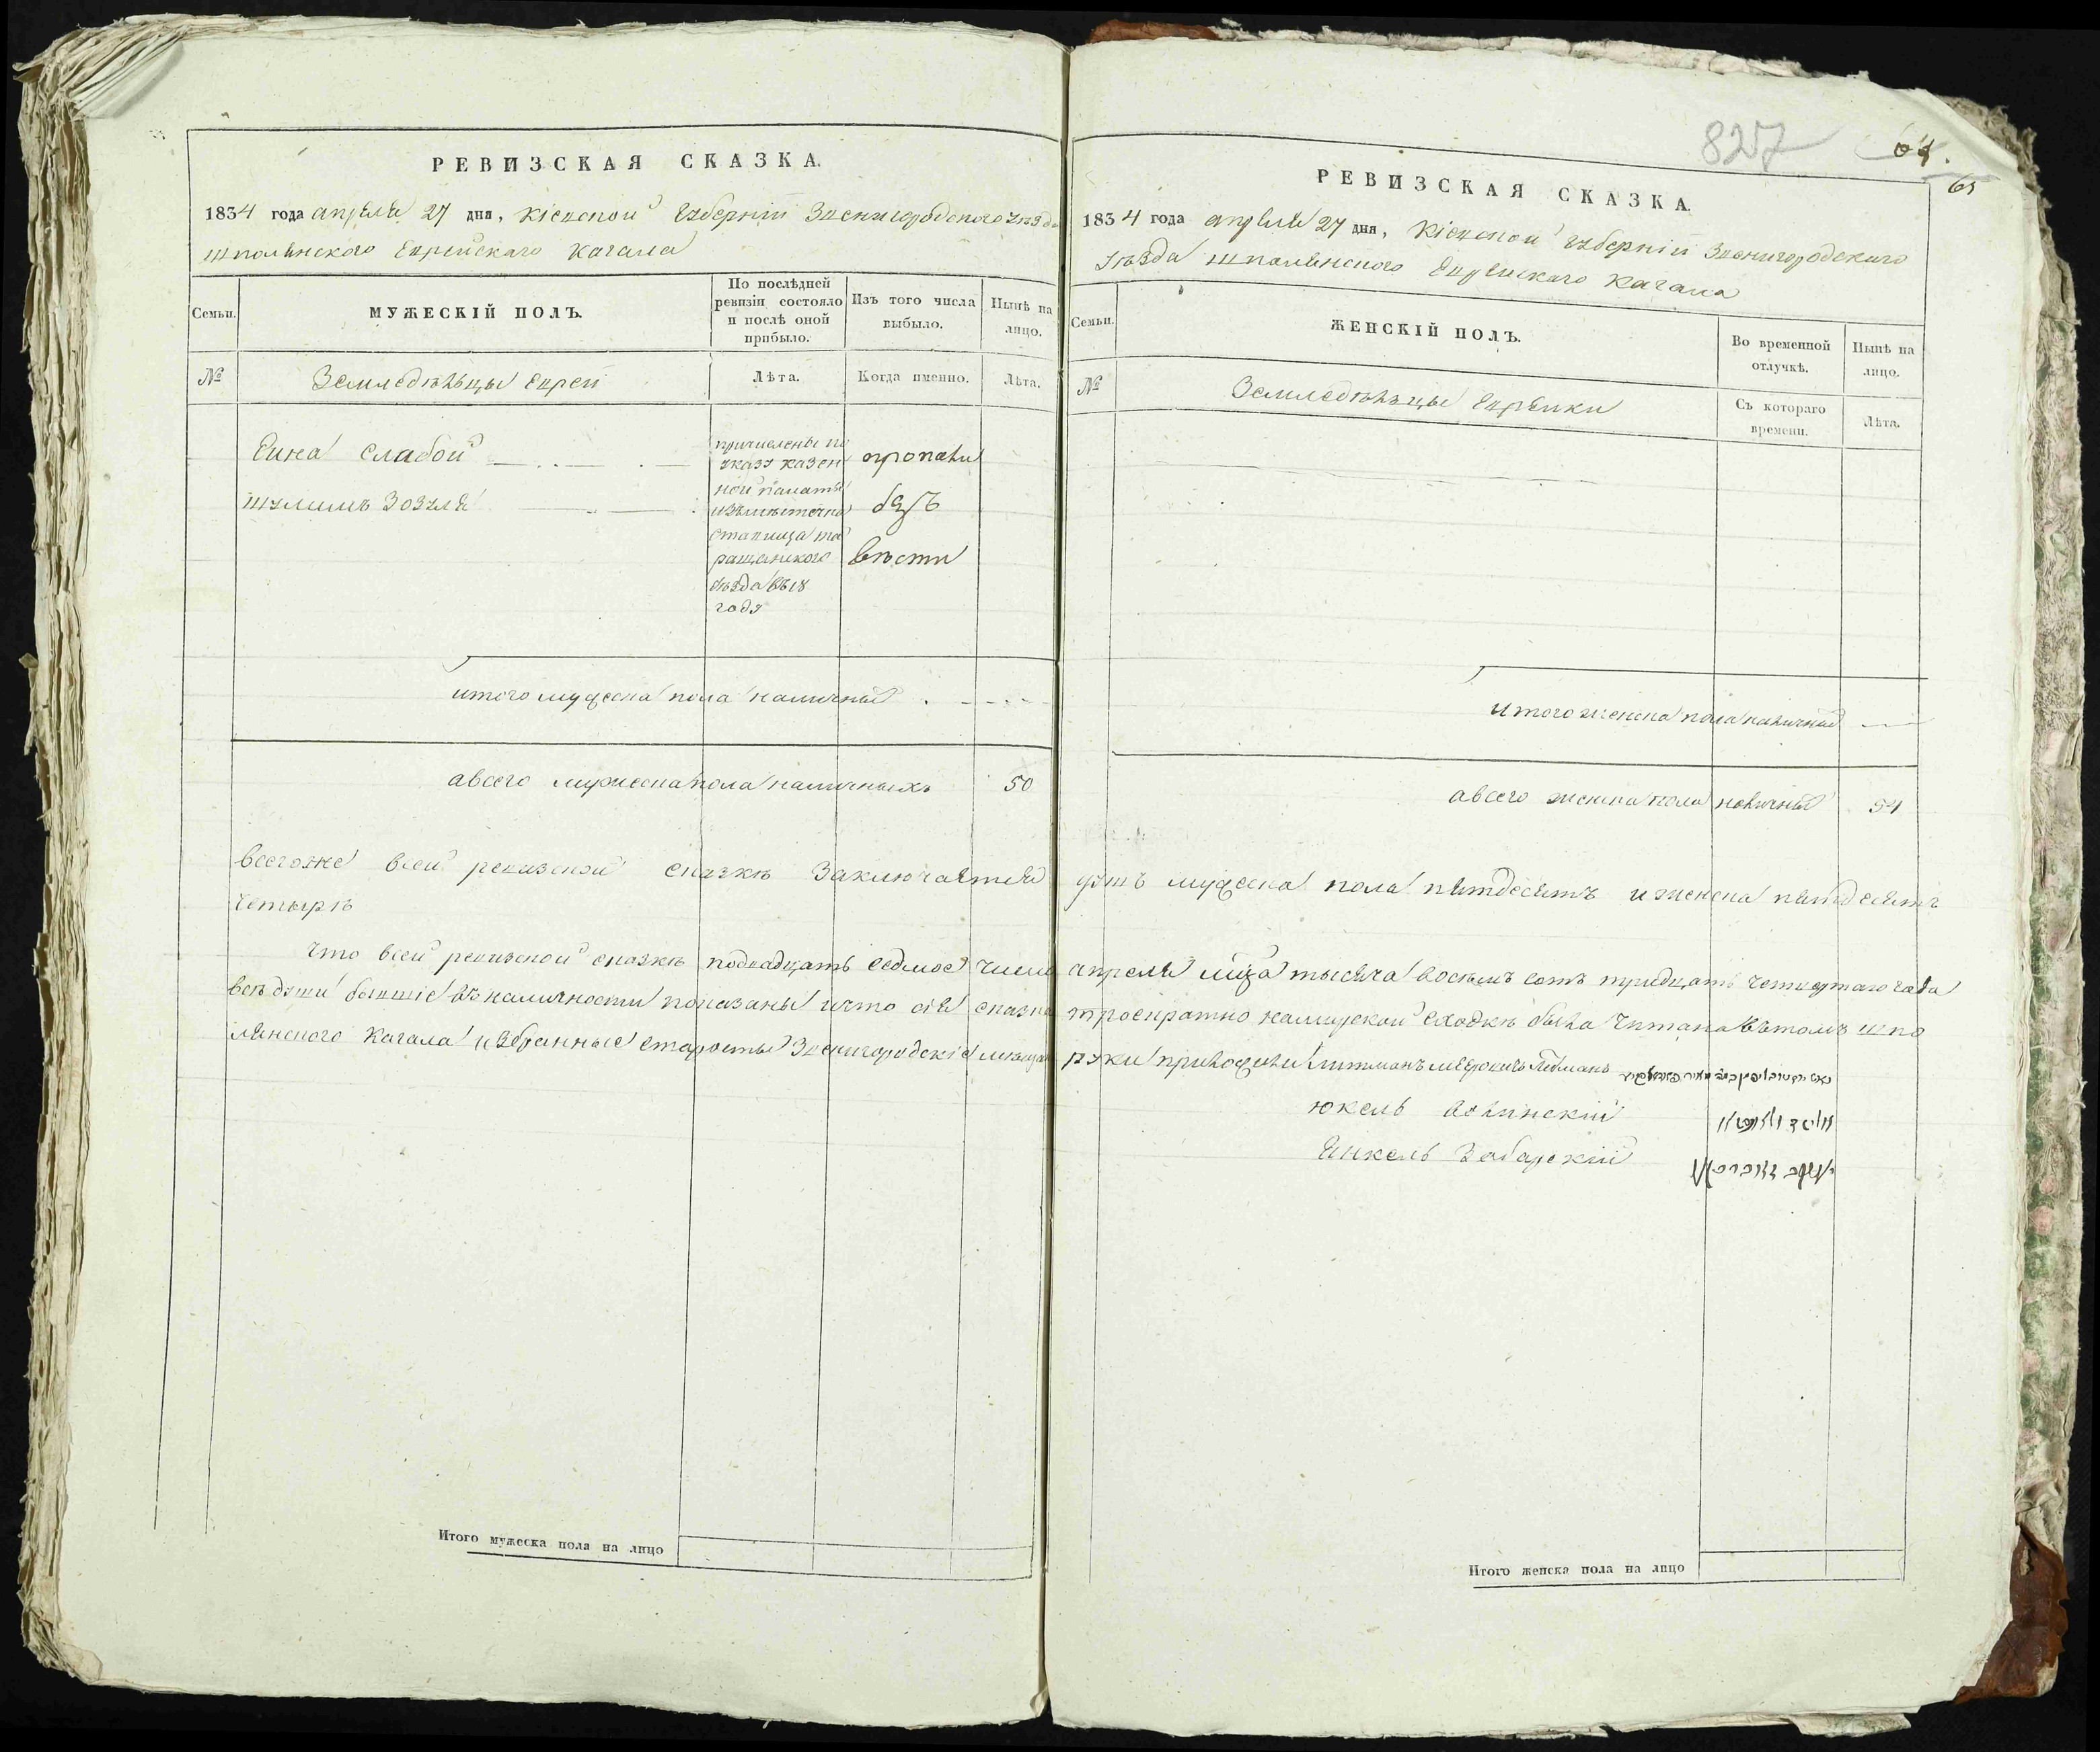 РЕВИЗСКАЯ СКАЗКА.
1834 года апреля 27 дня, Кіевской губерніи Звенигородского уезда
шполянского Еврейскаго Кагала
Семьи.
МУЖЕСКІЙ ПОЛЪ.
По послѣдней ревизіи состояло и послѣ оной прибыло.
Изъ того числа выбыло.
Нынѣ на лицо.
№
Земледѣльцы Евреи
Лѣта.
Когда именно.
Лѣта.
Слабой
Шулимъ
причислены по
указу казен
ной палаты
изъ местечка
ставища та
ращанского
уезда въ 18
году
пропали
безъ
вѣсти
итого мужеска пола наличныхъ
а всего мужеска пола наличныхъ 50
РЕВИЗСКАЯ СКАЗКА.
1834 года апреля 27 дня, Кіевской губерніи Звенигородского
уѣзда шполянского Еврейскаго Кагала
Семьи.
ЖЕНСКІЙ ПОЛЪ.
Во временной отлучкѣ.
Нынѣ на лицо.
№
Земледѣльцы Еврейки
Съ котораго времени.
Лѣта.
итого женска пола наличныхъ
а всего женска пола наличныхъ 54
всегоже всей ревизской сказкѣ заключается душъ мужеска пола пятдесятъ и женска пятдесятъ
четырѣ
Что всей ревизской сказкѣ подвадцать седмое число апреля мца тысяча восемъ сотъ тридцать четвертаго года
всѣ души бывшіе въ наличности показаны и что сія сказка троекратно на мирской сходкѣ была читана въ томъ шпо
лянского Кагала избранные старосты Звенигородскіе мещане руки приложили Литманъ
Юкель
Янкель Забарскій
Итого мужеска пола на лицо
Итого женска пола на лицо
827
64.
65